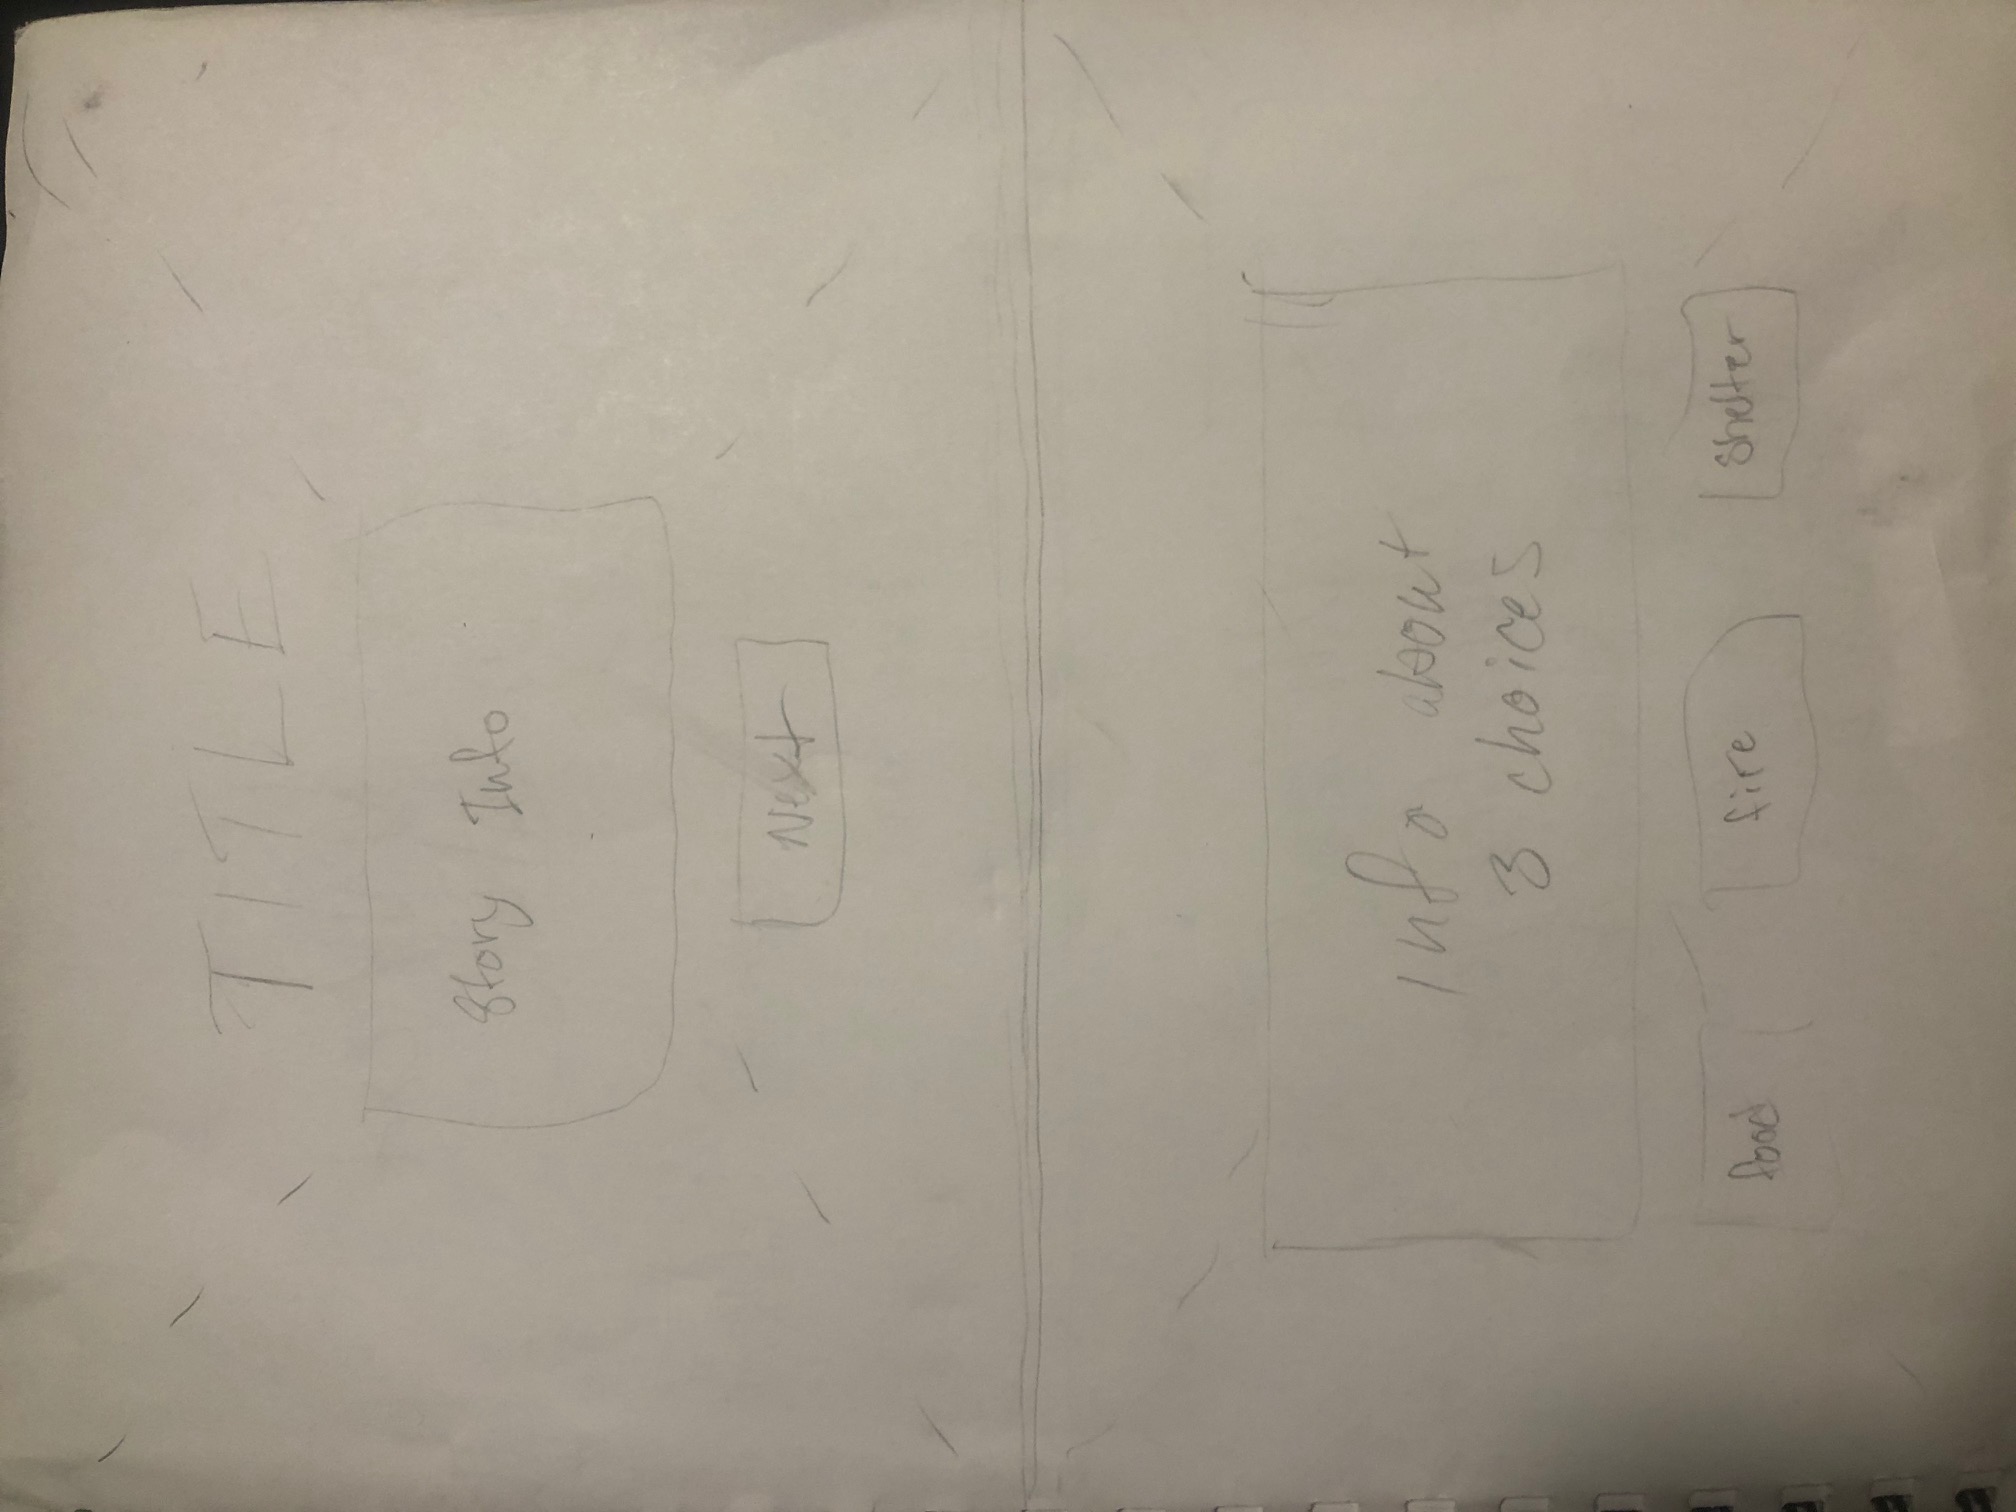 TITLE
Story Info
Next
Info about
3 choices
food fire shelter